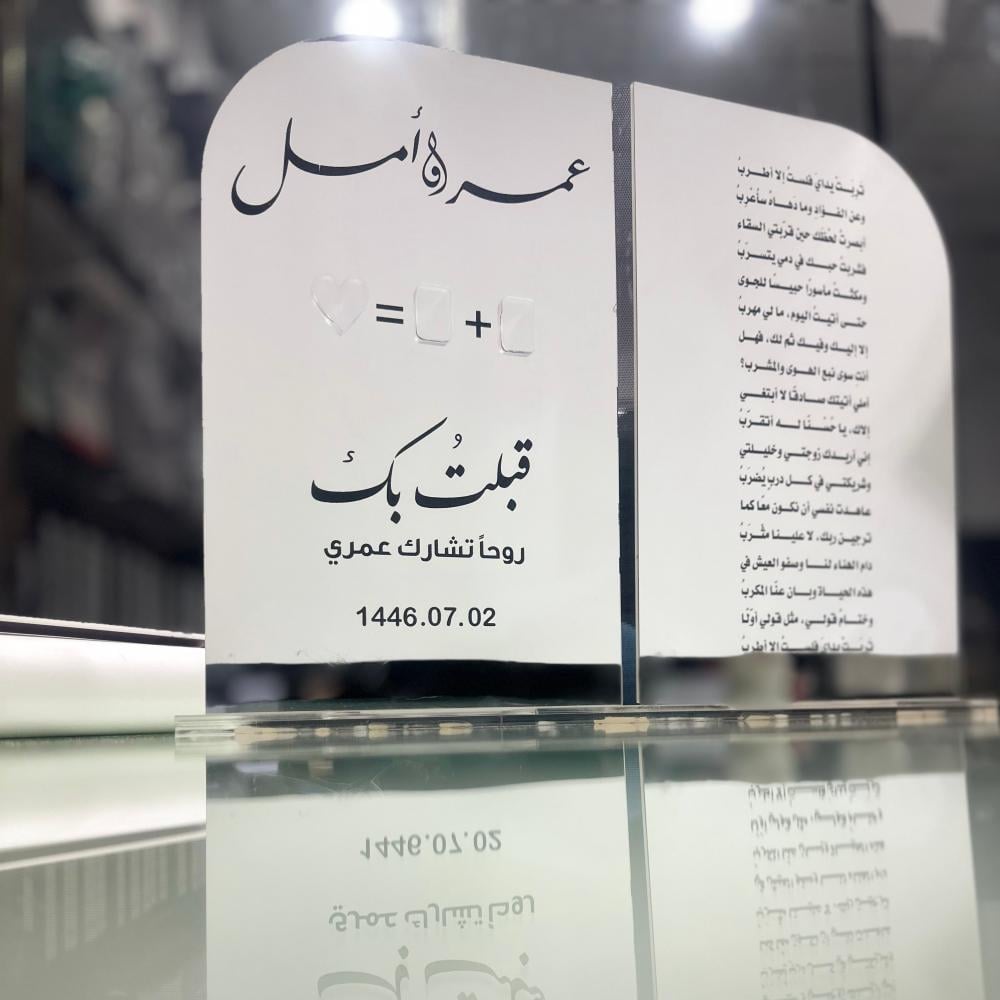 عمر و أمل
+ =
قبلتُ بك
روحاً تشارك عمري
1446.07.02
تَرِبَتْ يدايَ فلستُ إلا أطربُ
وعن الفؤادِ وما دهاهُ سأُعْرِبُ
أبصرتُ لحظَك حين قرّبتي السقاء
فشربتُ حبك في دمي يتسرّبُ
ومكثتُ مأسورًا حبيسًا للجوى
حتى أتيتُ اليوم، ما لي مهربُ
إلا إليك وفيك ثم لك، فهل
أنتِ سوى نبع الهوى والمشرب؟
أملي أتيتك صادقًا لا أبتغي
إلاك، يا حُسْنًا له أتقرّبُ
إني أريدك زوجتي وخليلتي
وشريكتي في كل دربٍ يُضرَبُ
عاهدت نفسي أن نكون معًا كما
ترجين ربك، لا علينا مثْرَبُ
دام الهناء لنا وصفو العيش في
هذه الحياة وبان عنّا المكربُ
وختامُ قولي، مثل قولي أوّلًا
تَرِبَتْ يدايَ فلستُ إلا أطربُ